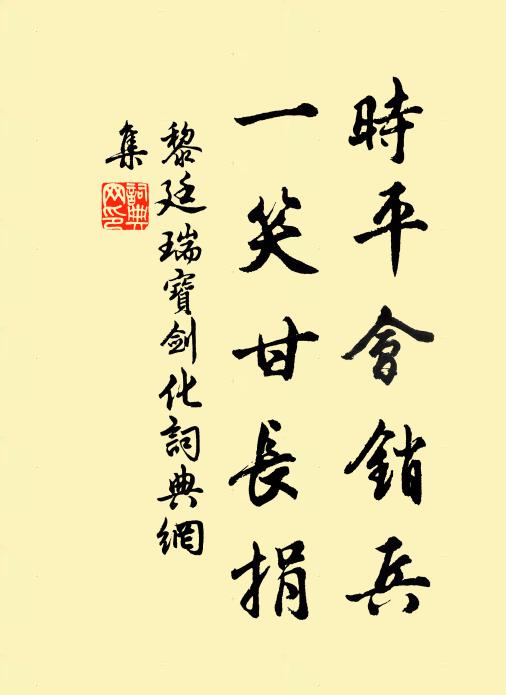 時平會銷兵
一笑甘長捐
黎廷瑞寶劍化詞典網
集
詞典
网印